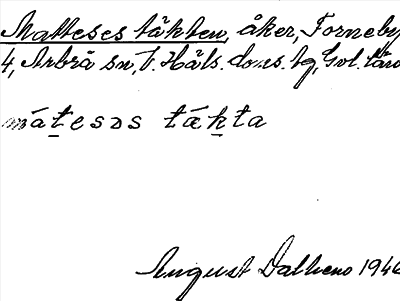 Matteses täkten, åker, Forneby
4, Arbrå sn, V. Häls. doms. tg, Gvl. län
mát̲esəs tǽk̲ta
August Dalheno 1946